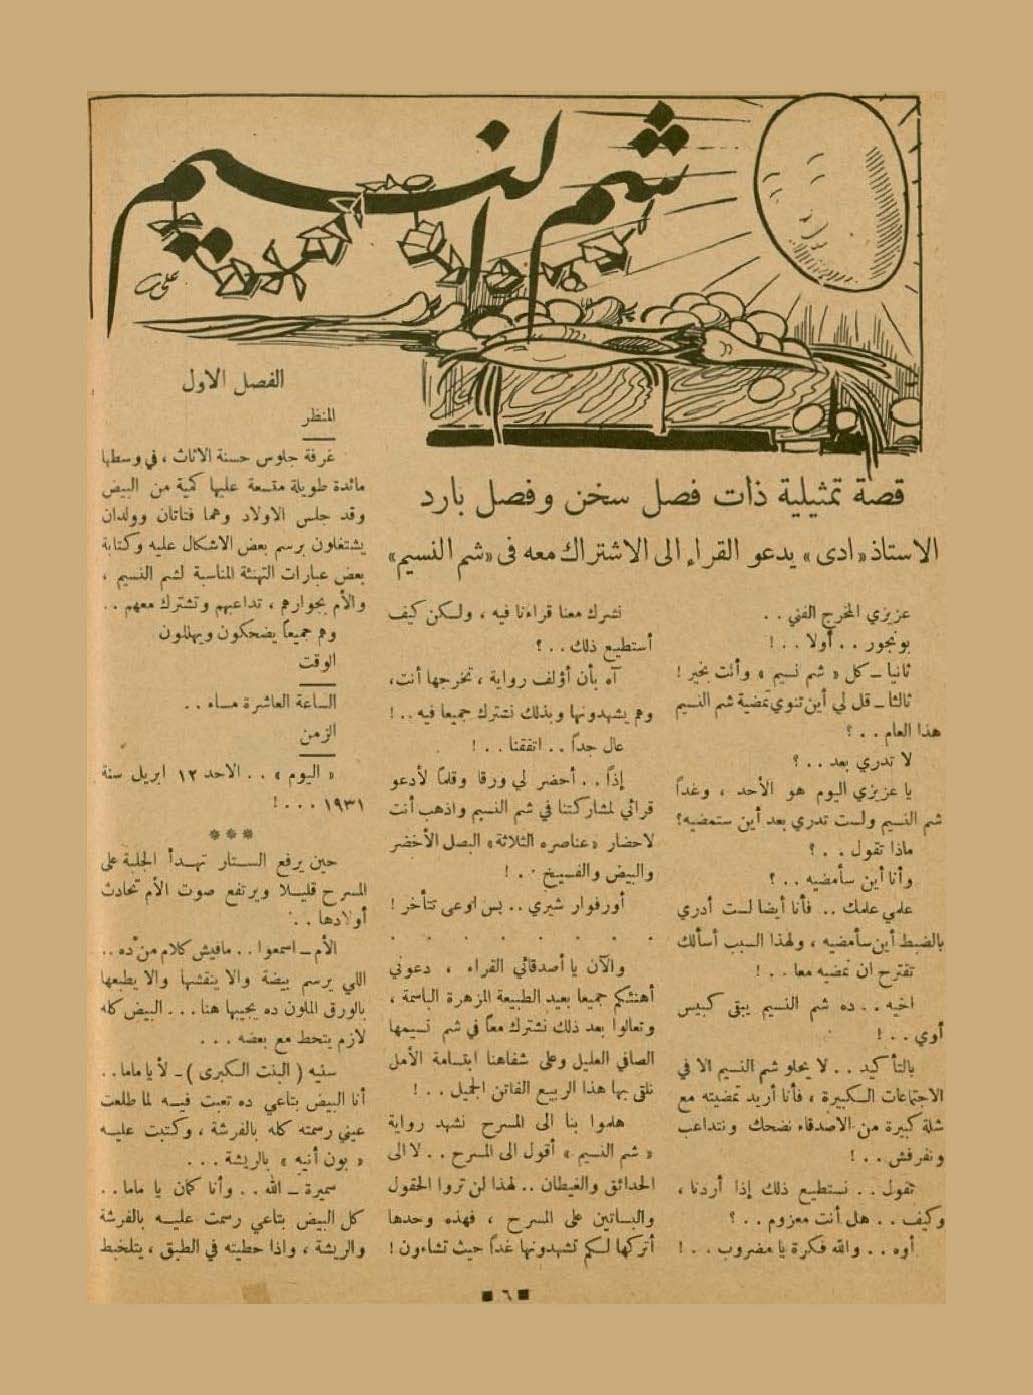 شم النسيم
علي
قصة تمثيلية ذات فصل سخن وفصل بارد
الاستاذ «ادى» يدعو القراء الى الاشتراك معه فى «شم النسيم»
عزيزي المخرج الفني . .
بونجور . . أولا . . !
ثانيا ــ كل « شم نسيم » وأنت بخير !
ثالثا ــ قل لي أين تنوي تمضية شم النسيم
هذا العام . . ؟
لا تدري بعد . . ؟
يا عزيزي اليوم هو الأحد ، وغداً
شم النسيم ولست تدري بعد أين ستمضيه؟
ماذا تقول . . ؟
وأنا أين سأمضيه . . ؟
علمي علمك . . فأنا أيضا لست أدري
بالضبط أين سأمضيه ، ولهذا السبب أسألك
تقترح ان نمضيه معا . . !
اخيه . . ده شم النسيم يبقى كبيس
أوي . . !
بالتأكيد . . لا يحلو شم النسيم الا في
الاجتماعات الكبيرة ، فأنا أريد تمضيته مع
شلة كبيرة من الاصدقاء نضحك ونتداعب
ونفرفش . . !
تقول . . نستطيع ذلك إذا أردنا ،
وكيف . . هل أنت معزوم . . ؟
أوه . . والله فكرة يا مضروب . . !
نشرك معنا قراءنا فيه ، ولكن كيف
أستطيع ذلك . . ؟
آه بأن أؤلف رواية ، تخرجها أنت،
وهم يشهدونها وبذلك نشترك جميعا فيه . . !
عال جداً . . اتفقنا . . !
إذاً . . أحضر لي ورقا وقلماً لأدعو
قرائي لمشاركتنا في شم النسيم واذهب أنت
لاحضار «عناصره الثلاثة» البصل الأخضر
والبيض والفسيخ . . !
أورفوار شيري . . بس اوعى تتأخر !
. . . . . . . .
والآن يا أصدقائي القراء ، دعوني
أهنئكم جميعا بعيد الطبيعة المزهرة الباسمة ،
وتعالوا بعد ذلك نشترك معاً في شم نسيمها
الصافي العليل وعلى شفاهنا ابتسامة الأمل
نلقى بها هذا الربيع الفاتن الجميل . . !
هلموا بنا الى المسرح نشهد رواية
« شم النسيم » أقول الى المسرح . . لا الى
الحدائق والغيطان . . لهذا لن تروا الحقول
والبساتين على المسرح ، فهذه وحدها
أتركها لكم تشهدونها غداً حيث تشاءون !
الفصل الاول
المنظر
غرفة جلوس حسنة الاثاث ، في وسطها
مائدة طويلة متسعة عليها كمية من البيض
وقد جلس الاولاد وهما فتاتان وولدان
يشتغلون برسم بعض الاشكال عليه وكتابة
بعض عبارات التهنئة المناسبة لشم النسيم ،
والأم بجوارهم ، تداعبهم وتشترك معهم . .
وهم جميعاً يضحكون ويهللون
الوقت
الساعة العاشرة مساء . .
الزمن
« اليوم » . . الاحد ١٢ ابريل سنة
١٩٣١ . . . !
***
حين يرفع الستار تهدأ الجلبة على
المسرح قليلا ويرتفع صوت الأم تحادث
أولادها . .
الأم ــ اسمعوا . . مافيش كلام من ده . .
اللي يرسم بيضة والا ينقشها والا يطبعها
بالورق الملون ده يجيبها هنا . . . البيض كله
لازم يتحط مع بعضه . . .
سنيه ( البنت الكبرى ) ــ لأ يا ماما . .
أنا البيض بتاعي ده تعبت فيه لما طلعت
عيني رسمته كله بالفرشة ، وكتبت عليه
« بون أنيه » بالريشة . . .
سميرة ــ الله . . وأنا كمان يا ماما . .
كل البيض بتاعي رسمت عليه بالفرشة
والريشة ، واذا حطيته في الطبق ، يتلخبط
٦